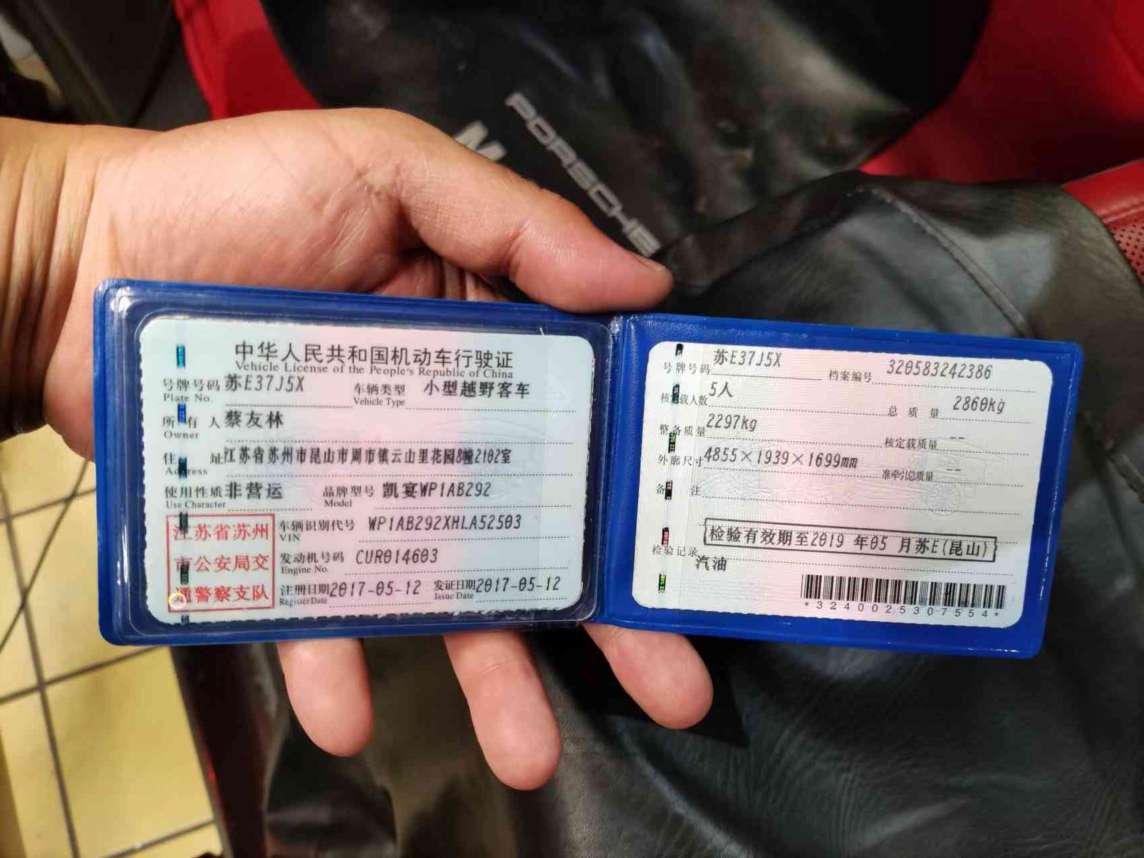 PORSCHE
中华人民共和国机动车行驶证
Vehicle License of the People's Republic of China
号牌号码 苏E37J5X 车辆类型 小型越野客车
Plate No. Vehicle Type
所有人 蔡友林
Owner
住址 江苏省苏州市昆山市周市镇云山里花园8幢2102室
Address
使用性质 非营运 品牌型号 凯宴WP1AB292
Use Character Model
江苏省苏州
市公安局交
通警察支队
车辆识别代号 WP1AB292XHLA52503
VIN
发动机号码 CUR014603
Engine No.
注册日期 2017-05-12 发证日期 2017-05-12
Register Date Issue Date
号牌号码 苏E37J5X 档案编号 320583242386
核定载人数 5人 总质量 2860kg
整备质量 2297kg 核定载质量 --
外廓尺寸 4855×1939×1699mm 准牵引总质量 --
备注
检验记录 检验有效期至2019 年05 月苏E(昆山)
汽油
*3240025307554*